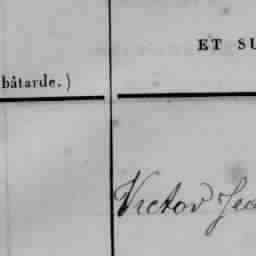 ET SU
bâtarde.)
Victor Jea